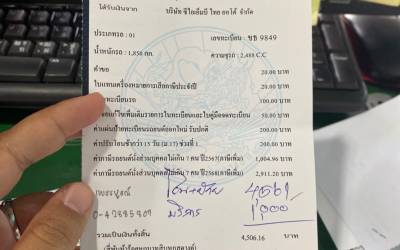 ได้รับเงินจาก บริษัท ซีไอเอ็มบี ไทย ออโต้ จำกัด
ประเภทรถ : 01 เลขทะเบียน : ขธ 9849
น้ำหนักรถ : 1,850 กก. ความจุรถ : 2,488 C.C
ค่าคำขอ 20.00 บาท
ใบแทนเครื่องหมายการเสียภาษีประจำปี 20.00 บาท
ทะเบียนรถ 100.00 บาท
แก้ไขเพิ่มเติมรายการในทะเบียนและใบคู่มือจดทะเบียน 50.00 บาท
ค่าแผ่นป้ายทะเบียนรถยนต์ออกใหม่ รับปกติ 200.00 บาท
ค่าปรับโอนช้ากว่า 15 วัน (ม.17) ช่วงที่ 1 200.00 บาท
ค่าภาษีรถยนต์นั่งส่วนบุคคลไม่เกิน 7 คน ปี2567(ภาษีเพิ่ม) 1,004.96 บาท
ค่าภาษีรถยนต์นั่งส่วนบุคคลไม่เกิน 7 คน ปี2568(ภาษีเพิ่ม) 2,911.20 บาท
เพชรบูรณ์ 4561/
บริการ 1,000
รวมเป็นเงินทั้งสิ้น 4,506.16 บาท